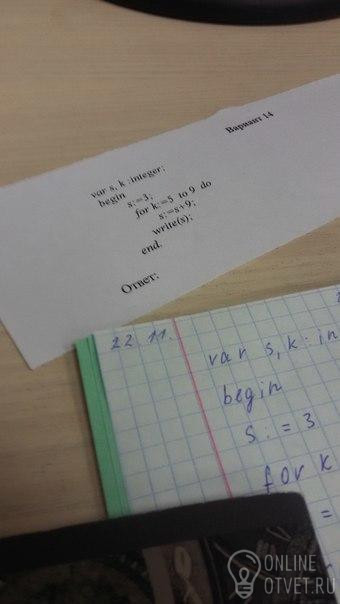 Вариант 14
var s, k :integer;
begin
s:=3;
for k:=5 to 9 do
s:=s+9;
write(s);
end.
Ответ:
22 11.
var s, k : in
begin
s : = 3
for k
=
ONLINE
OTVET.RU